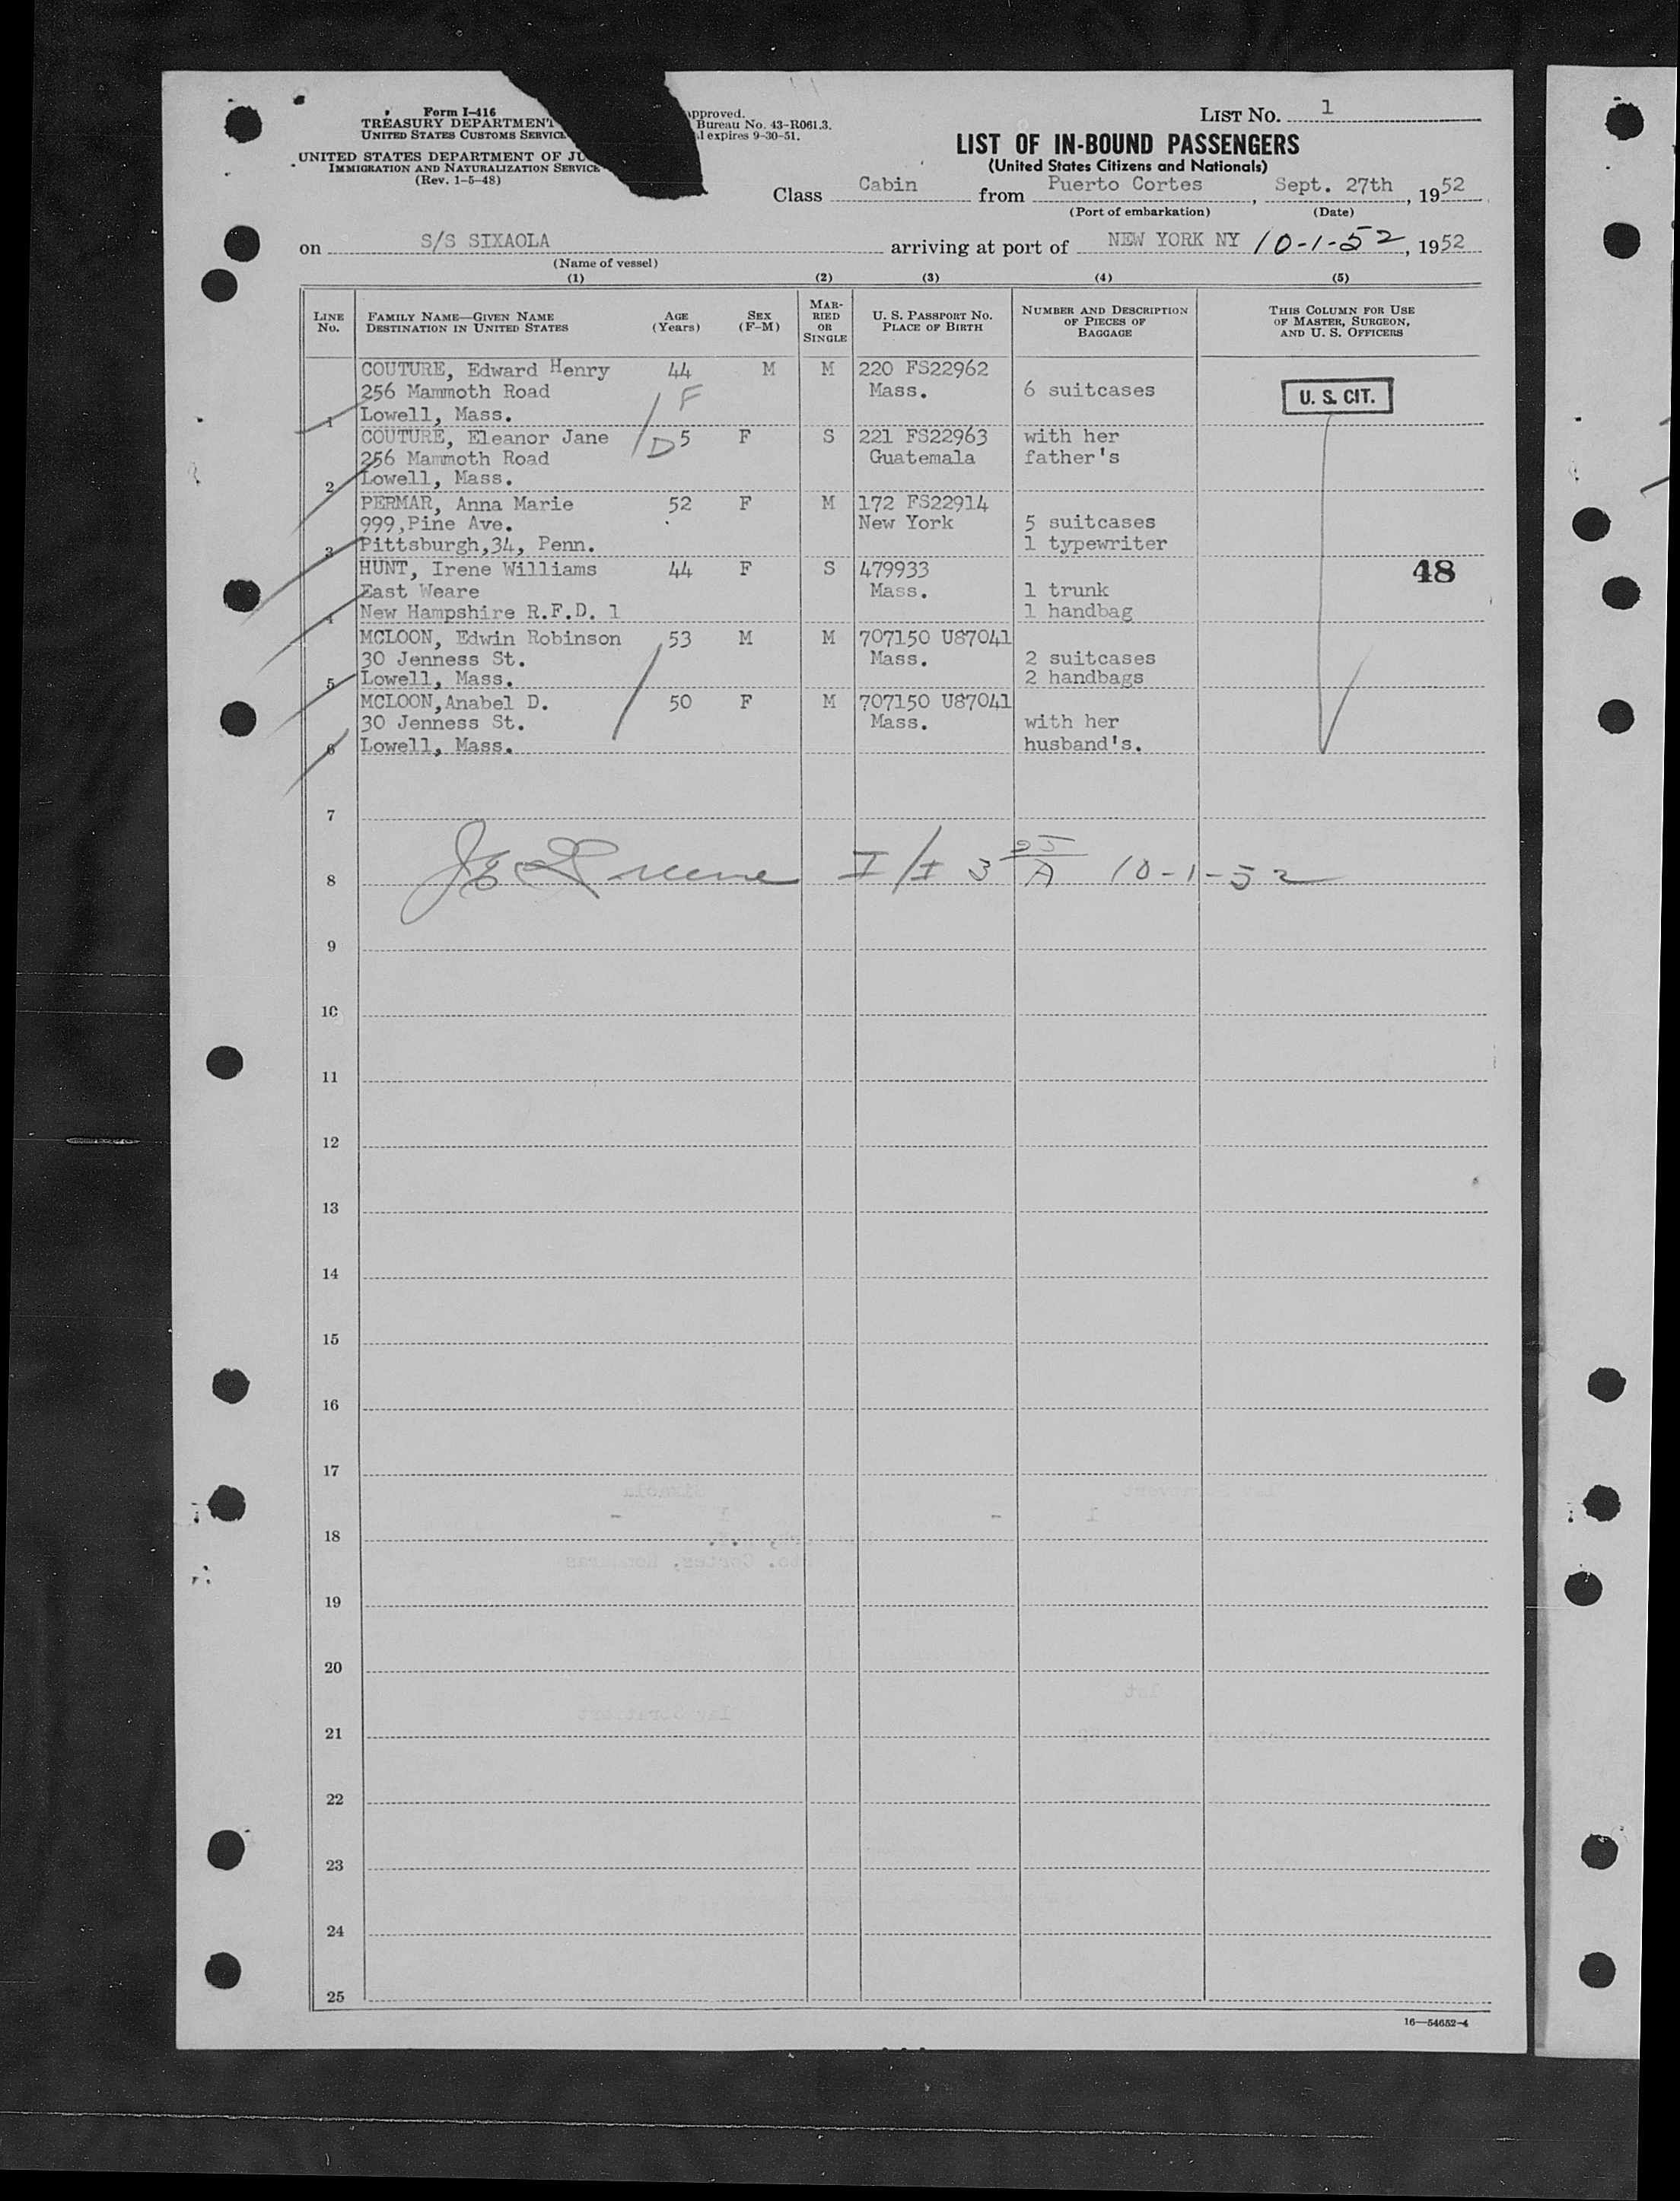 Form I-416
TREASURY DEPARTMENT
UNITED STATES CUSTOMS SERVICE
UNITED STATES DEPARTMENT OF JU
IMMIGRATION AND NATURALIZATION SERVICE
(Rev. 1-5-48)
approved.
Bureau No. 43-R061.3.
l expires 9-30-51.
LIST No. 1
LIST OF IN-BOUND PASSENGERS
(United States Citizens and Nationals)
Class Cabin from Puerto Cortes, Sept. 27th, 1952
(Port of embarkation) (Date)
on S/S SIXAOLA arriving at port of NEW YORK NY 10-1-52, 1952
(Name of vessel)
(1) (2) (3) (4) (5)
LINE No. FAMILY NAME—GIVEN NAME DESTINATION IN UNITED STATES AGE (Years) SEX (F-M) MARRIED OR SINGLE U. S. PASSPORT No. PLACE OF BIRTH NUMBER AND DESCRIPTION OF PIECES OF BAGGAGE THIS COLUMN FOR USE OF MASTER, SURGEON, AND U. S. OFFICERS
COUTURE, Edward Henry 44 M M 220 FS22962
256 Mammoth Road F Mass. 6 suitcases U. S. CIT.
1 Lowell, Mass.
COUTURE, Eleanor Jane D 5 F S 221 FS22963 with her
256 Mammoth Road Guatemala father's
2 Lowell, Mass.
PERMAR, Anna Marie 52 F M 172 FS22914
999,Pine Ave. New York 5 suitcases
3 Pittsburgh,34, Penn. 1 typewriter
HUNT, Irene Williams 44 F S 479933 48
East Weare Mass. 1 trunk
4 New Hampshire R.F.D. 1 1 handbag
MCLOON, Edwin Robinson 53 M M 707150 U87041
30 Jenness St. Mass. 2 suitcases
5 Lowell, Mass. 2 handbags
MCLOON,Anabel D. 50 F M 707150 U87041
30 Jenness St. Mass. with her
6 Lowell, Mass. husband's.
7
8 Greene I/I 3 A 10-1-52
9
10
11
12
13
14
15
16
17
18
19
20
21
22
23
24
25
16—54652-4